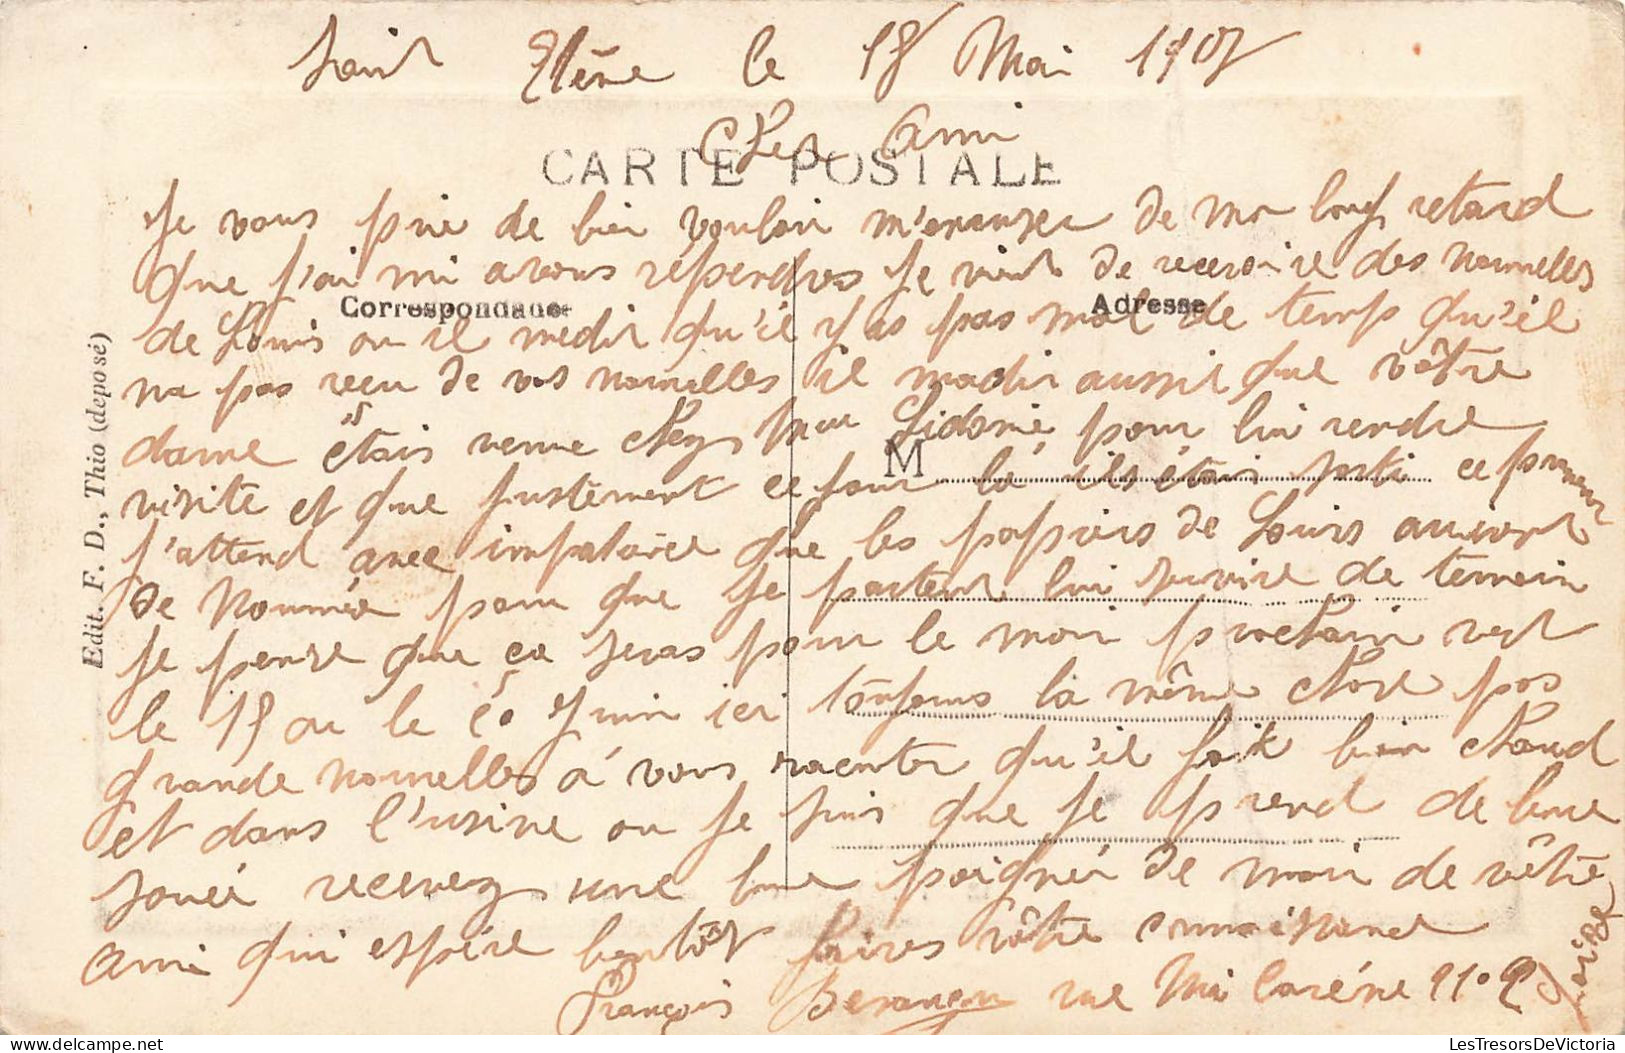 Saint Elène le 18 Mai 1907
Cher Ami
CARTE POSTALE
Je vous prie de bien vouloir m'excuser de mon long retard
que j'ai mi a vous répendres Je vient de recevoire des nouvelles
Correspondance
Adresse
de Louis ou il me dit qu'il y as pas mal de temp qu'il
na pas reçu de vos nouvelles il ma dit aussit que vôtre
dame étais venue chez Sidonie pour lui rendre
M
visite et que justèment ce jour là ils étais sorti
j'attend avec impatience que les papiers de Louis
de Nouméa pour que je lui servire de temoin
Je pense que ça seras pour le moi prochain vert
le 15 ou le 20 Juin ici toujours la même chose pas
grande nouvelles à vous raconter qu'il fait bien chaud
et dans l'usine ou Je suis que Je prend de bone
suée recevez une bone poignée de main de vôtre
ami qui espère bentôt faires vôtre connaisance
François rue Mi Carène 21
Edit. F. D., Thio (deposé)
LesTresorsDeVictoria.com